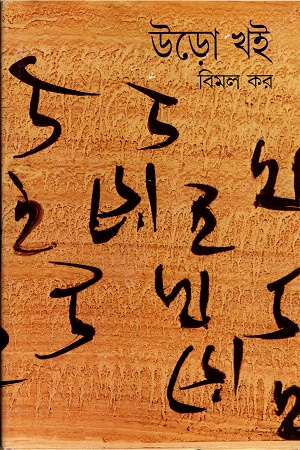 উড়ো খই
বিমল কর
উ ড
ই ড়ো ই খ
উ উ খ উ
ড়ো